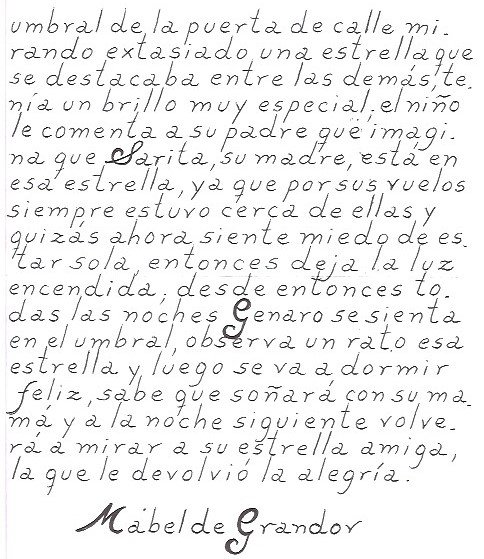 umbral de la puerta de calle mi-
rando extasiado una estrella que
se destacaba entre las demás, te-
nía un brillo muy especial, el niño
le comenta a su padre que imagi-
na que Sarita, su madre, está en
esa estrella, ya que por sus vuelos
siempre estuvo cerca de ellas y
quizás ahora siente miedo de es-
tar sola, entonces deja la luz
encendida, desde entonces to-
das las noches Genaro se sienta
en el umbral, observa un rato esa
estrella y luego se va a dormir
feliz, sabe que soñará con su ma-
má y a la noche siguiente volve-
rá a mirar a su estrella amiga,
la que le devolvió la alegría.
Mabel de Grandov